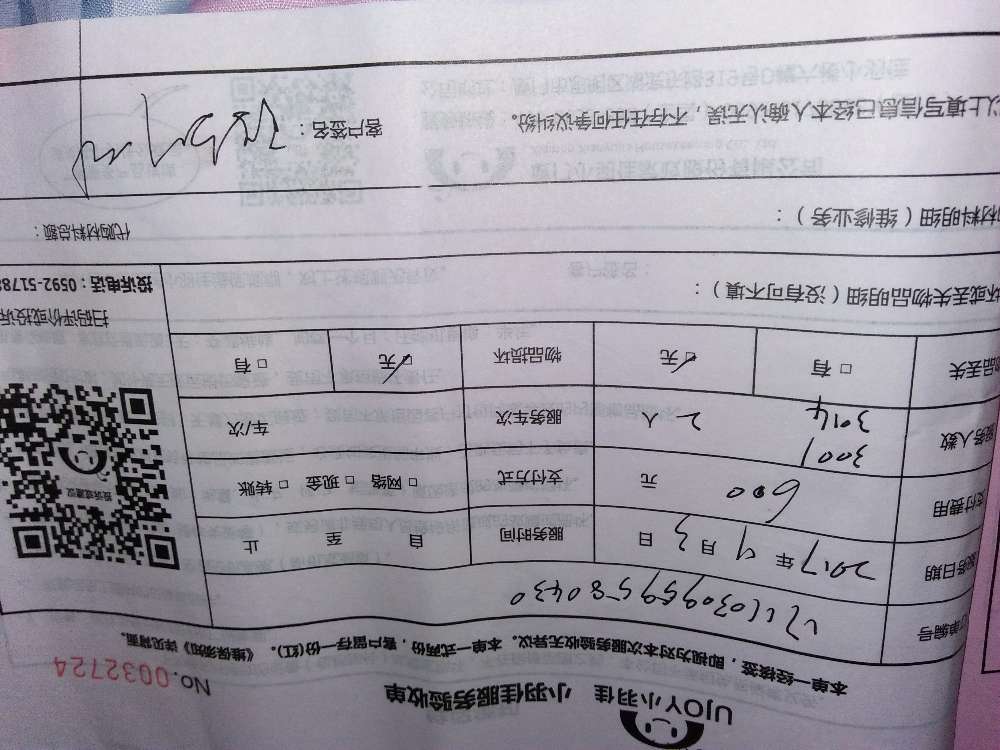 UJOY小羽佳 小羽佳服务验收单
No.0032724
本单一经核签，即视为对本次服务验收无异议。本单一式两份，客户留存一份(红)。《维保须知》详见背面。
单编号
服务日期 2017年9月3日 服务时间 自 至 止
支付费用 600 元 支付方式 □网络 □现金 □转账
服务人数 3001 3014 2人 服务车次 车/次
物品丢失 □有 ☑无 物品损坏 ☑无 □有
投诉或建议
扫码评价或投诉
投诉电话：0592-5178
坏或丢失物品明细（没有可不填）：
材料明细（维修业务）： 代购材料总额：
以上填写信息已经本人确认无误，不存在任何争议纠纷。 客户签名：